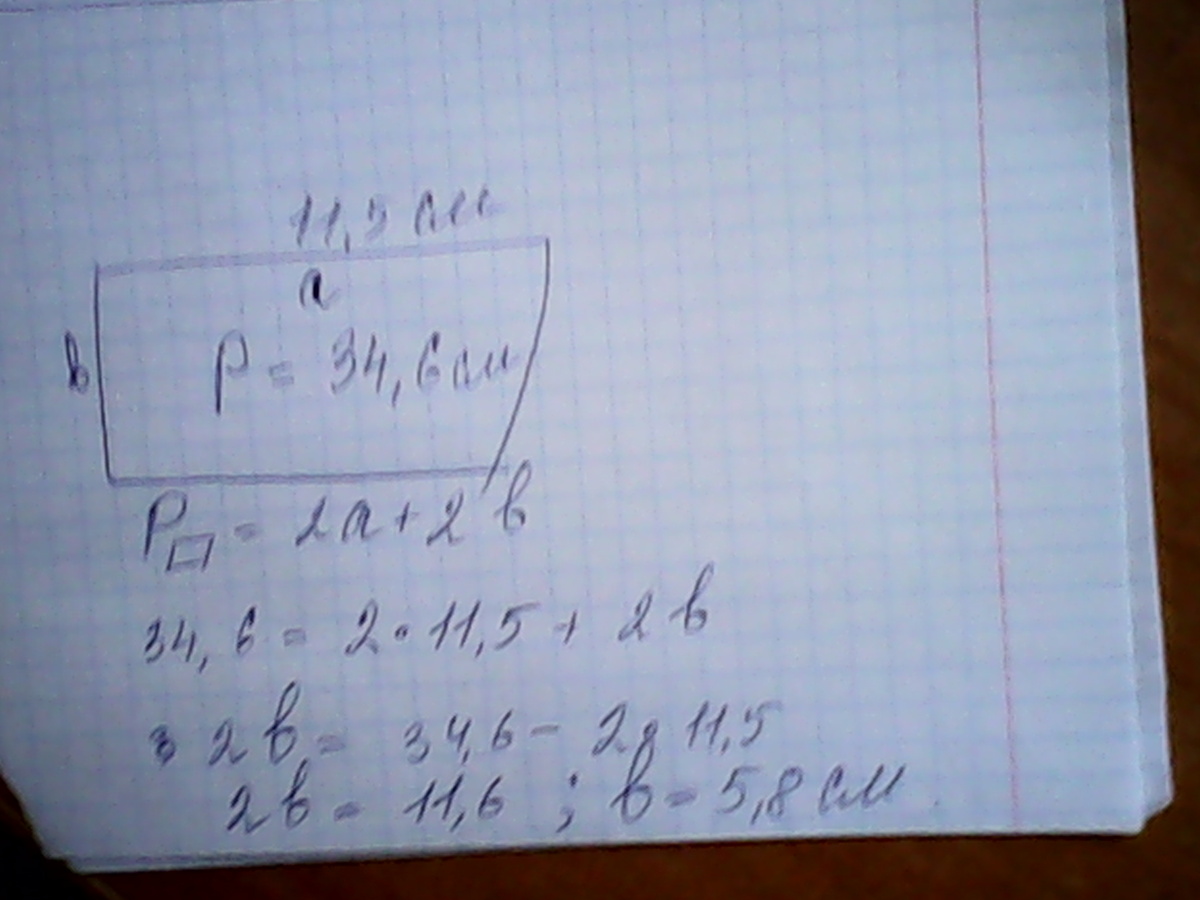 11,5 см
a
в P = 34,6 см
P▱ = 2a + 2в
34,6 = 2 · 11,5 + 2в
2в = 34,6 - 2 · 11,5
2в = 11,6 ; в = 5,8 см